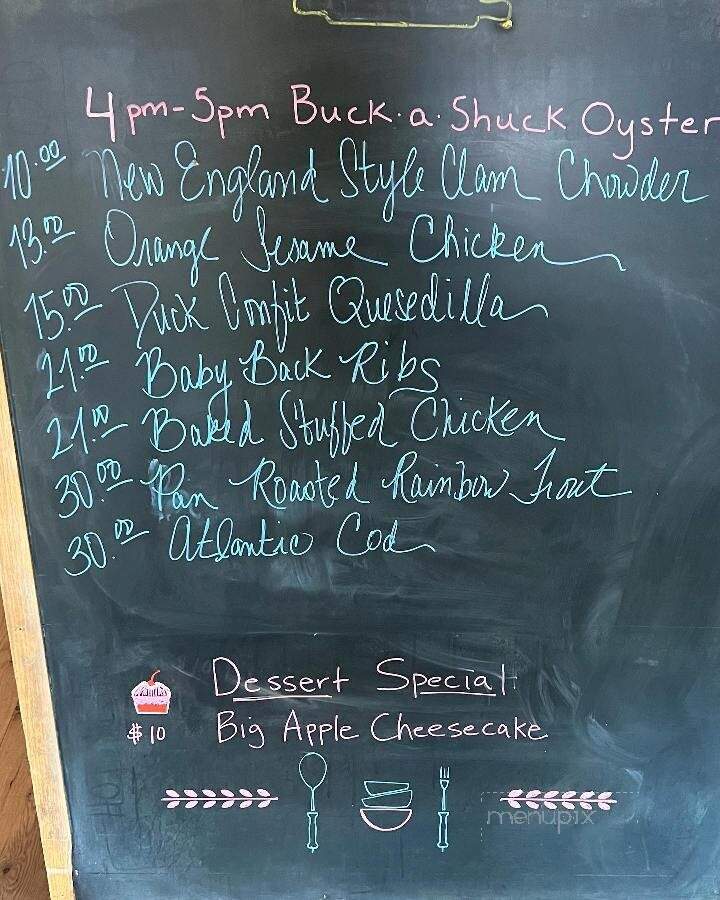 4pm-5pm Buck·a·Shuck Oyster
10.00 New England Style Clam Chowder
13.00 Orange Sesame Chicken
15.00 Duck Confit Quesedilla
21.00 Baby Back Ribs
21.00 Baked Stuffed Chicken
30.00 Pan Roasted Rainbow Trout
30.00 Atlantic Cod
Dessert Special
$10 Big Apple Cheesecake
menupix